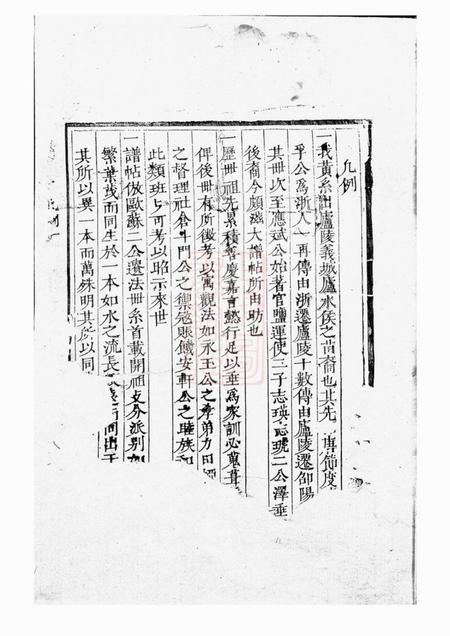 凡例
一我黃系出廬陵義城廬水侯之苗裔也其先 唐節度
孚公爲浙人一再傳由浙遷廬陵十數傳由廬陵遷邵陽
其世次至應斌公始著官鹽運使二子志瑛志琥二公澤垂
後裔今頗滋大譜帖所由昉也
一歷世祖先累積善慶嘉言懿行足以垂爲家訓必蒐葺
俾後世有所徵考以寓觀法如永玉公之孝弟力田
之督理社倉斗門公之禦寇賑饑安軒公之睦族和
此類班班可考以昭示來世
一譜帖倣歐蘇二公遺法世系首載開祖支分派別如
繁葉茂而同生於一本如水之流長 而同出于
其所以異一本而萬殊明其所以同